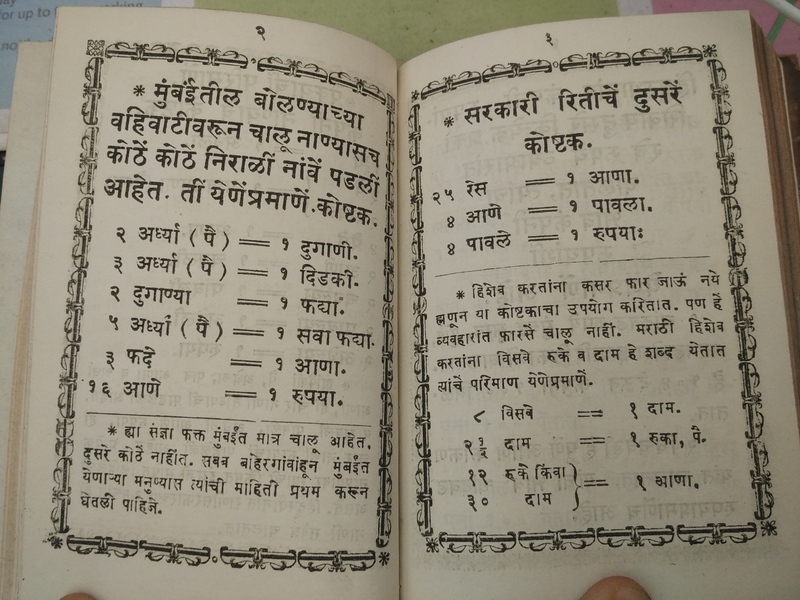 २
* मुंबईतील बोलण्याच्या
वहिवाटीवरून चालू नाण्यासच
कोठें कोठें निराळीं नांवें पडलीं
आहेत. तीं येणेंप्रमाणें.कोष्टक.
२ अर्ध्या (पै) = १ दुगाणी.
३ अर्ध्या (पै) = १ दिडकी.
२ दुगाण्या = १ फद्या.
५ अर्ध्या (पै) = १ सवा फद्या.
३ फदे = १ आणा.
१६ आणे = १ रुपया.
* ह्या संज्ञा फक्त मुंबईंत मात्र चालू आहेत.
दुसरे कोठें नाहींत. सबब बाहेरगांवांहून मुंबईंत
येणाऱ्या मनुष्यास त्यांची माहिती प्रथम करून
घेतली पाहिजे.
३
* सरकारी रितीचें दुसरें
कोष्टक.
२५ रेस = १ आणा.
४ आणे = १ पावला.
४ पावले = १ रुपयाः
* हिशेव करतांना कसर फार जाऊं नये
ह्मणून या कोष्टकाचा उपयोग करितात. पण हें
व्यवहारांत फारसें चालू नाहीं. मराठी हिशेव
करतांना विसवे रुके व दाम हे शब्द येतात
त्यांचें परिमाण येणेंप्रमाणें.
८ विसवे = १ दाम.
२½ दाम = १ रुका, पै.
१२ रुके किंवा
३० दाम } = १ आणा.